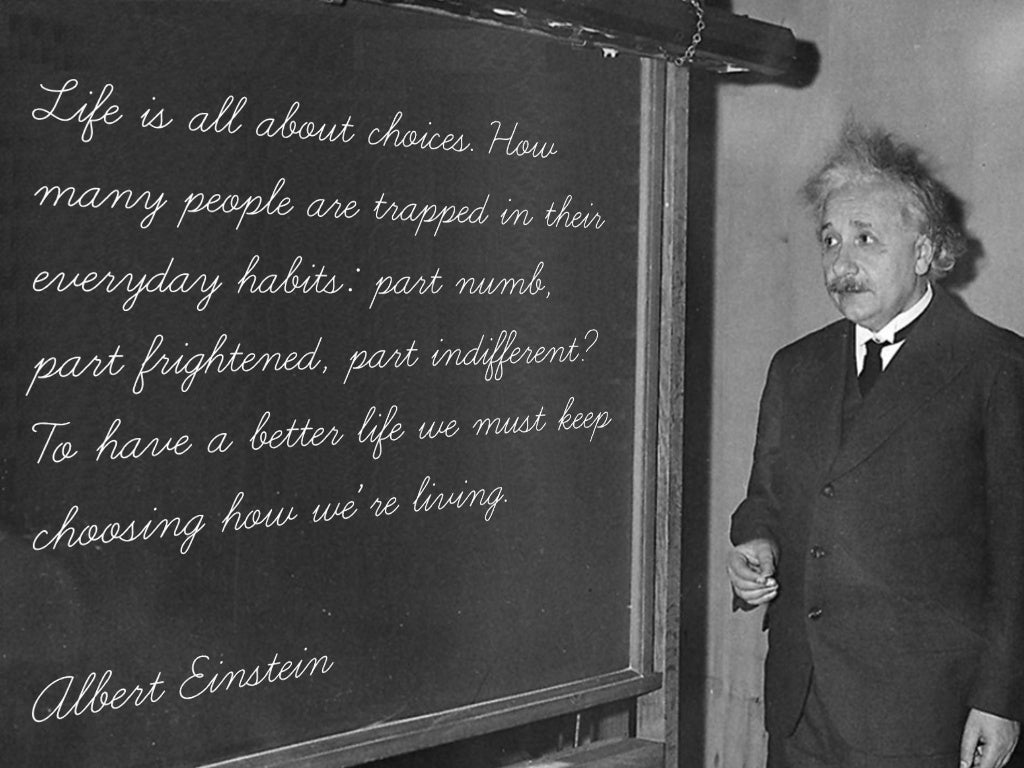 Life is all about choices. How
many people are trapped in their
everyday habits: part numb,
part frightened, part indifferent?
To have a better life we must keep
choosing how we're living.
Albert Einstein